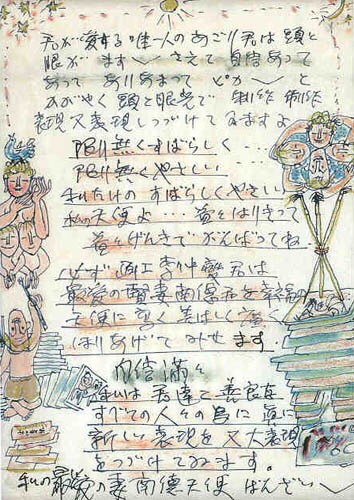 君が愛する唯一人のあごり君は頭と
眼が ます〱 さえて 自信あって
あって ありあまって ピカ〱 と
かがやく 頭と眼光で 制作 制作
表現又表現しつづけてゐますよ
限り無くすばらしく...
限り無くやさしい...
私だけの すばらしくやさしい
私の天使よ... 益々はりきって
益々げんきで がんばってね
必ず 画工李仲燮君は
最愛の賢妻南徳君を幸福の
天使に高く 美はしく 廣く
はりあげて みせ ます.
自信満々
私は 君達と 善良な
すべての人々の為に 真に
新しい表現を 又大表現
をつづけてゐます。
私の最愛の妻南徳天使 ばんざい〱